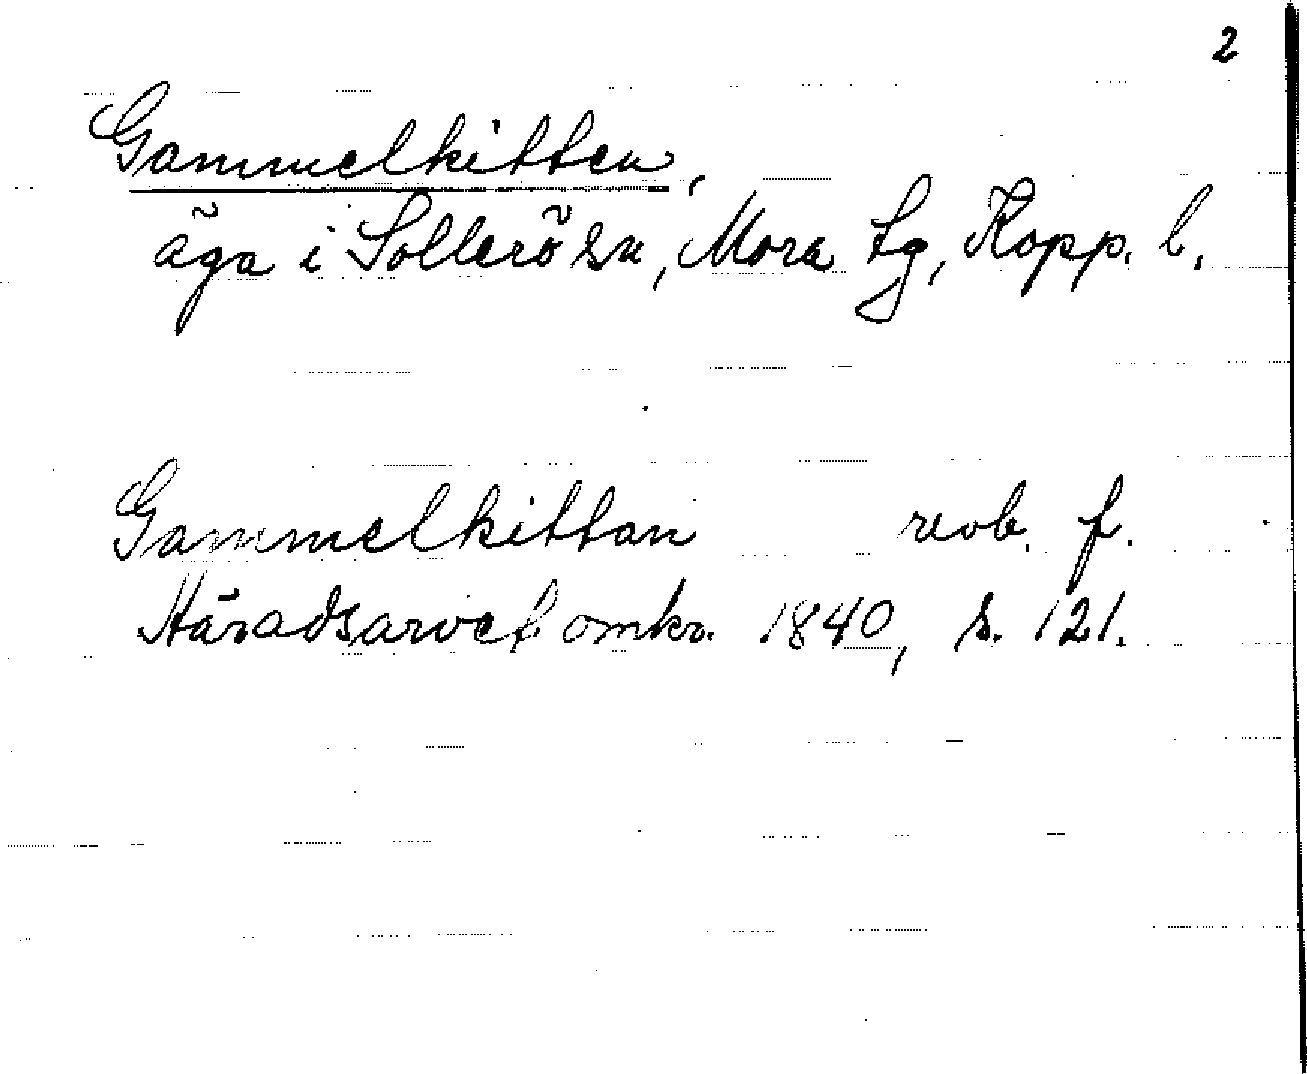 2
Gammelkitten,
äga i Sollerö sn, Mora tg, Kopp. l.
Gammelkittan revb. f.
Häradsarvet omkr. 1840, s. 121.